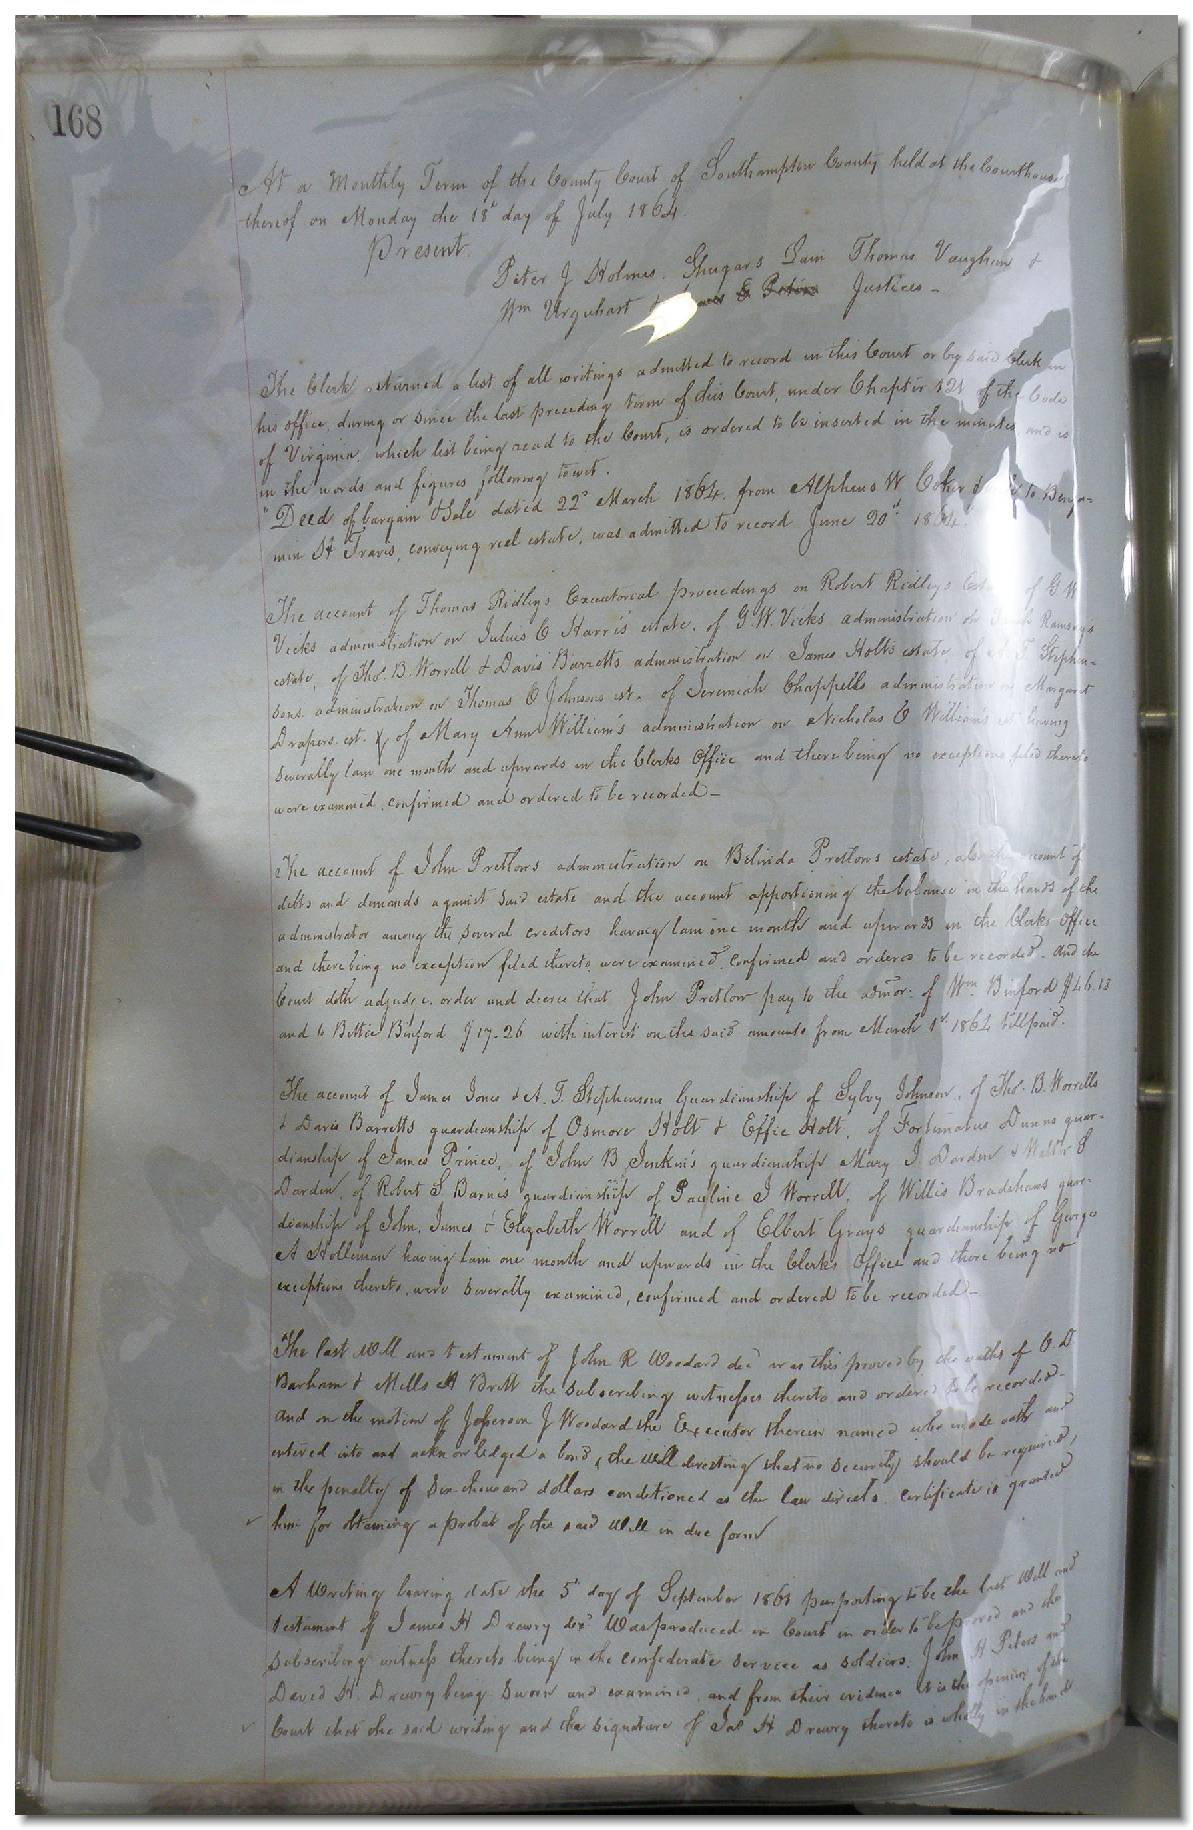 168
At a Monthly Term of the County Court of Southampton County held at the Courthouse
thereof on Monday the 18th day of July 1864.
Present.
Peter J Holmes. Shugars Lain Thomas Vaughan &
Wm Urquhart & Justices -
The Clerk returned a list of all writings admitted to record in this Court or by said Clerk in
his office, during or since the last preceding term of this Court, under Chapter 121 of the Code
of Virginia, which list being read to the Court, is ordered to be inserted in the minutes and is
in the words and figures following towit.
"Deed of bargain & Sale dated 22d March 1864. from Alpheus W Coker to Benja-
min H Travis, conveying real estate, was admitted to record June 20th 1864.
The account of Thomas Ridleys Executorial proceedings on Robert Ridleys of G W
Vicks administration on Julius C Harris estate. of G. W. Vicks administration on Ramseys
estate, of Thos. B. Worrell & Davis Barretts administration on James Holts estate, of A. T. Stephen-
sons administration on Thomas C Johnsons est. of Jeremiah Chappells administration on Margaret
Drapers est. & of Mary Ann William's administration on Nicholas C William's est having
severally lain one month and upwards in the Clerks Office and there being no exceptions filed thereto
were examined, confirmed and ordered to be recorded -
The account of John Pretlows administration on Belinda Pretlows estate, also the account of
debts and demands against said estate and the account apportioning the balance in the hands of the
administrator among the several creditors having lain one month and upwards in the Clerks Office
and there being no exception filed thereto, were examined, confirmed and ordered to be recorded. And the
Court doth adjudge, order and decree that John Pretlow pay to the admor. of Wm. Binford $46.13
and to Bettie Binford $17.26 with interest on the said amounts from March 1st 1864 till paid.
The account of James Jones & A. T. Stephensons Guardianship of Sylvy Johnson, of Thos. B. Worrells
& Davis Barretts guardianship of Osmore Holt & Effie Holt, of Fortunatus Dunns guar-
dianship of James Prince, of John B Jenkin's guardianship Mary J. Darden & Walter S
Darden, of Robert S. Barnes guardianship of Pauline J Worrell, of Willis Bradshaws guar-
dianship of John, James & Elizabeth Worrell and of Elbert Grays guardianship of George
A Holleman having lain one month and upwards in the Clerks Office and there being no
exceptions thereto, were severally examined, confirmed and ordered to be recorded -
The last Will and testament of John R Woodard decd was this proved by the oaths of O. D
Barham & Mills A Britt the subscribing witnesses thereto and ordered to be recorded.
And on the motion of Jefferson J Woodard the Executor therein named who made oath and
entered into and acknowledged a bond, (the Will directing that no security should be required,
in the penalty of Six thousand dollars conditioned as the law directs. Certificate is granted
him for obtaining a probat of the said Will in due form
A Writing bearing date the 5th day of September 1861 purporting to be the last Will and
testament of James H Drewry decd Was produced in Court in order to be proved and the
subscribing witness thereto being in the confederate service as soldiers. John H Peters and
David H Drewry being Sworn and examined, and from their evidence it is the opinion of the
Court that the said writing and the signature of Jas H Drewry thereto is wholly in the hand